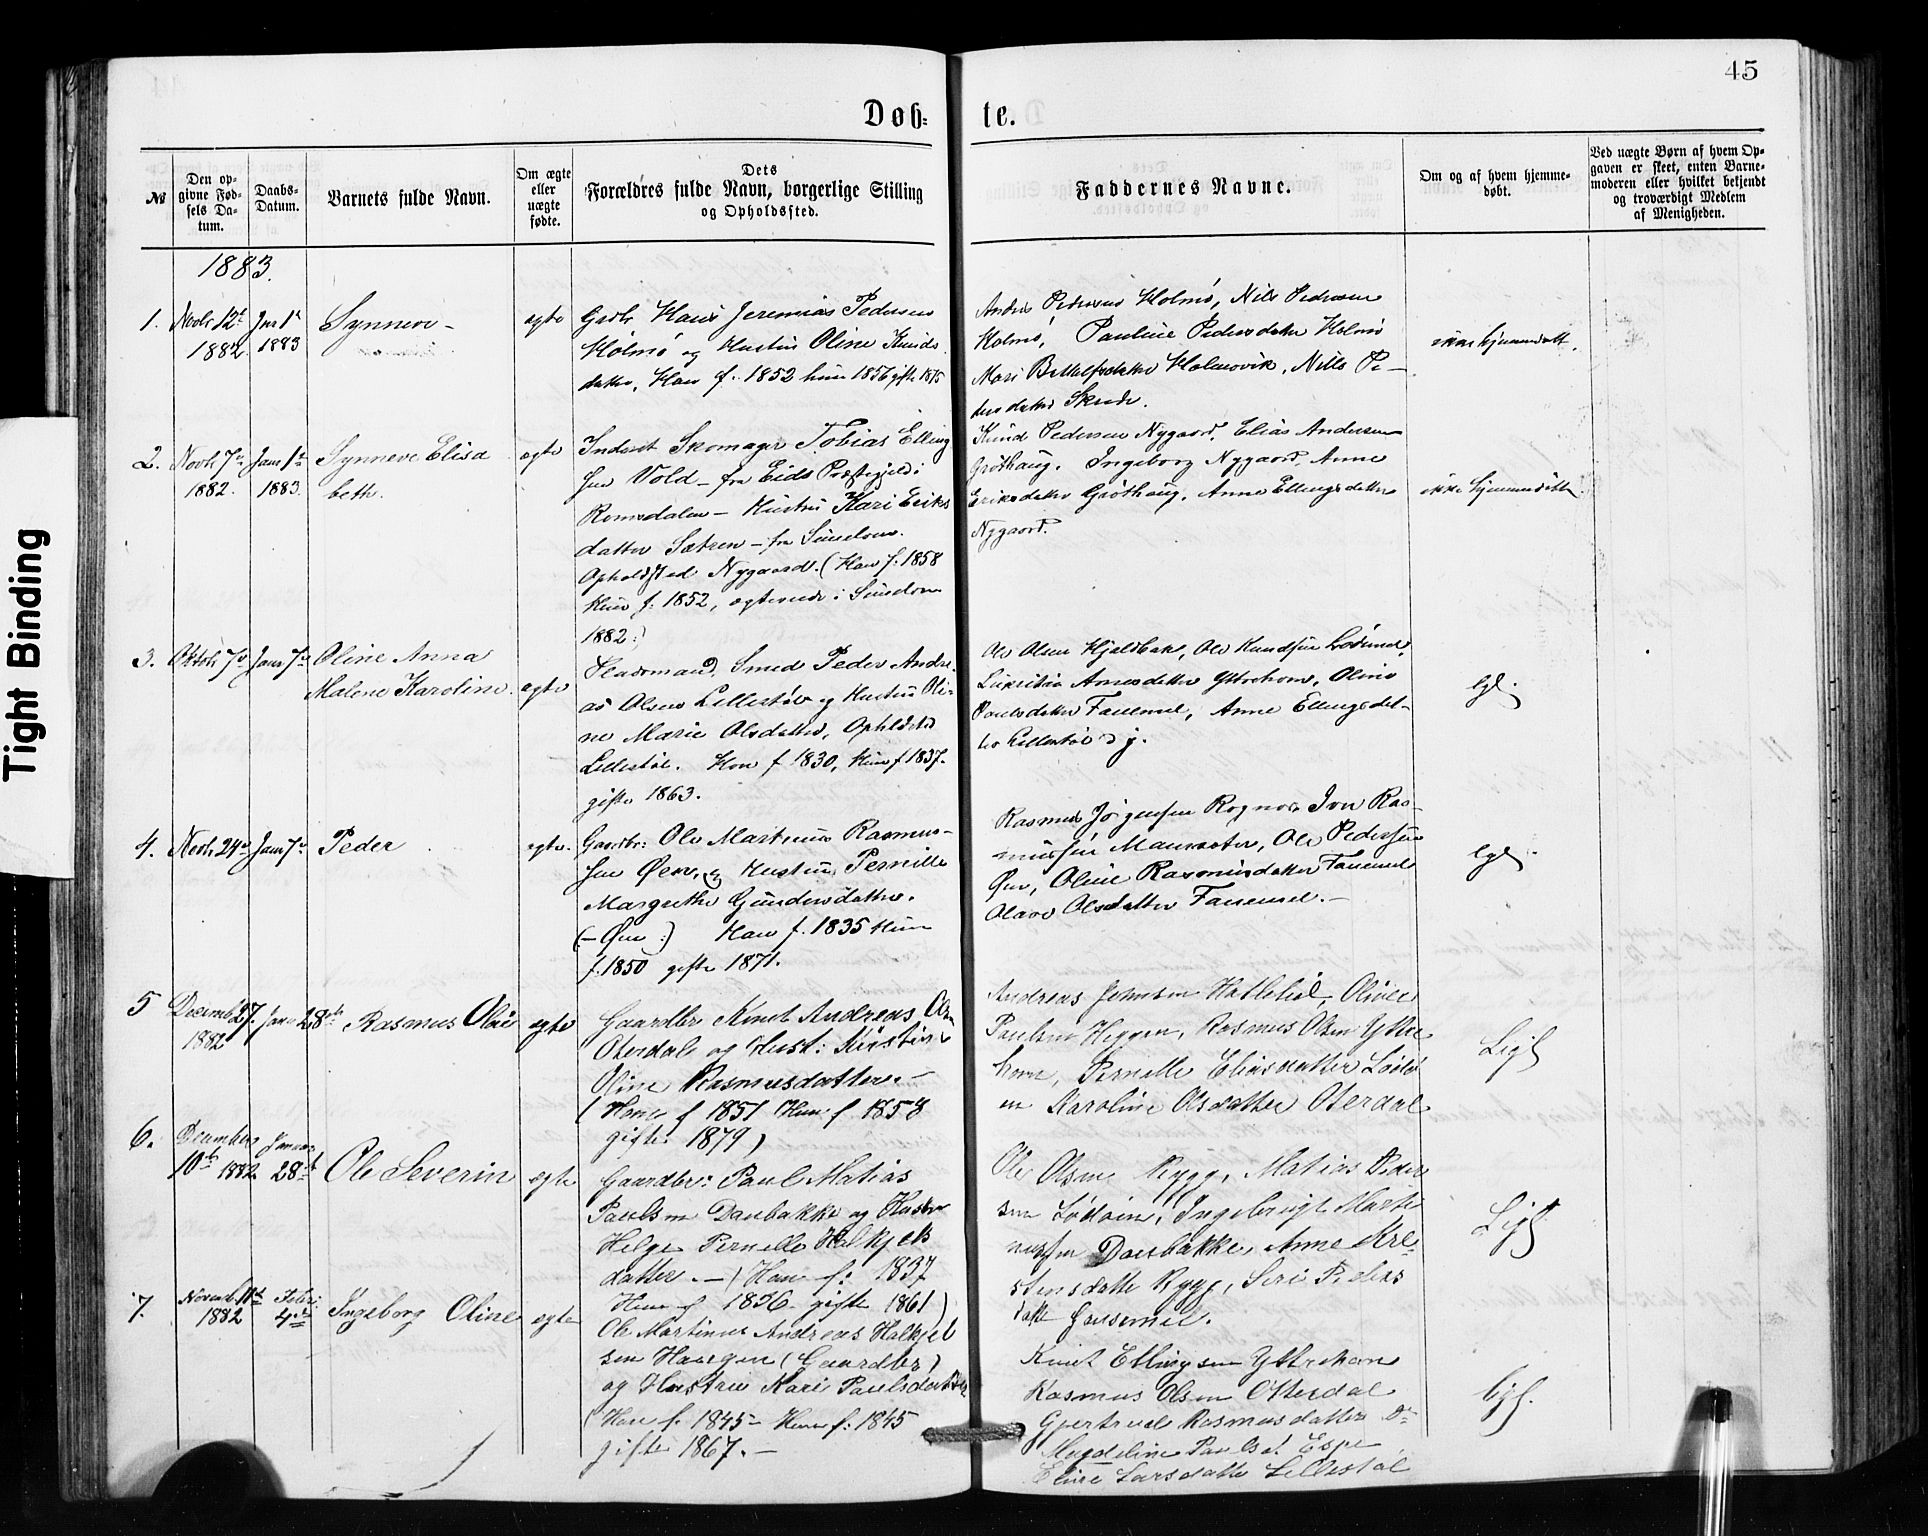 45
Døb= te.
№
Den op-
givne Fød-
sels Da-
tum.
Daabs-
Datum.
Barnets fulde Navn.
Om ægte
eller
uægte
fødte.
Dets
Forældres fulde Navn, borgerlige Stilling
og Opholdssted.
Faddernes Navne.
Om og af hvem hjemme-
døbt.
Ved uægte Børn af hvem Op-
gaven er skeet, enten Barne-
moderen eller hvilket bekjendt
og troværdigt Medlem
af Menigheden.
1883.
1.
Novbr 12te
1882
Jnr 1te
1883
Synneve -
egte
Grdbr Hans Jeremias Pedersen
Holmø og Hustru Oline Knuds
datter, Han f. 1852 hun 1856 gifte 1875
Anders Pedersen Holmø, Nils Pedersen
Holmø, Pauline Pedersdatter Holmø
Mari Holmovik, Nille Pe-
dersdatter Skrede.
ikke hjemmedøbt.
2.
Novbr 7de
1882.
Janr 1te
1883.
Synneve Elisa
beth.
egte
Inderst Skomager Tobias Elling
sen Vold - fra Eids Præstegjeld i
Romsdalen - Hustru Kari Eriks
datter Sætren - fra
Opholdssted Nygaard. (Han f. 1858
Hun f. 1852, egteviede i
1882:)
Knud Pedersen Nygaard, Elias Andersen
Grøthaug. Ingeborg Nygaard, Anne
Eriksdatter Grøthaug, Anne Ellingsdatter
Nygaard.
ikke hjemmedøbt
3.
Oktobr 7de
Janr 7de
Oline Anna
Malene Karoline.
egte
Pladsmand, Smed Peder Andre-
as Olsen Lillestøl og Hustru Oli-
ne Marie Olsdatter, Opholdsted
Lillestøl. Han f 1830, Hun f 1837.
gifte 1863.
Ole Olsen Hjeldbak, Ole Knudsen
Ytrehorn, Oline
Paulsdatter, Anne Ellingsdat-
ter Lillestøl d y.
lgl.
4.
Novbr 24de
Janr 7de
Peder
egte.
Gaardbr: Ole Martinus Rasmus-
sen Øen, og Hustru Pernille
Margrethe Gundersdatter.
(- Øen :) Han f. 1835 Hun
f. 1850 gifte 1871.
Rasmus Jørgensen, Iver Ras-
mussen, Ole Pedersen
Øen, Oline Rasmusdatter
Olave Olsdatter
lgl.
5
Decemb 27.
1882
Janr 28de
Rasmus Olai
egte
Gaardbr Knut Andreas Ols.
Oterdal og Hust: Kirstine
Oline Rasmusdatter. -
(Han f 1851 Hun f 1858
gifte 1879)
Andreas Johnsen, Oliver
Paulsen Heggen, Rasmus Olsen Ytre
horn, Pernille Eliasdatter
Karoline Olsdatter Oterdal
Ligl
6.
December
10de 1882
Januar
28de
Ole Severin
egte
Gaardbr: Paul Matias
Paulsen Daubakke og Hustru
Helge Pernille Halkjels
datter. -) Han f: 1837
Hun f 1836 gifte 1861)
Ole Olsen Rygg, Matias Peder
sen Lødøen, Ingebrigt Marti
nussen Daubakke, Anne Kre-
stensdatter Rygg, Seri Peders
datter
Ligl
7.
Novemb 11te
1882
Febr:
4de
Ingeborg Oline
egte
Ole Martinus Andreas Halkjel
sen Haugen (Gaardbr)
og Hustru Kari Paulsdatter
(Han f. 1845 - Hun f: 1845
gifte 1867. -
Knut Ellingsen Ytrehorn
Rasmus Olsen Otterdal
Gjertrud Rasmusdatter Do
Magdeline Paulsd. Espe
Eline Larsdatter Lillestøl
ligl.
Tight Binding